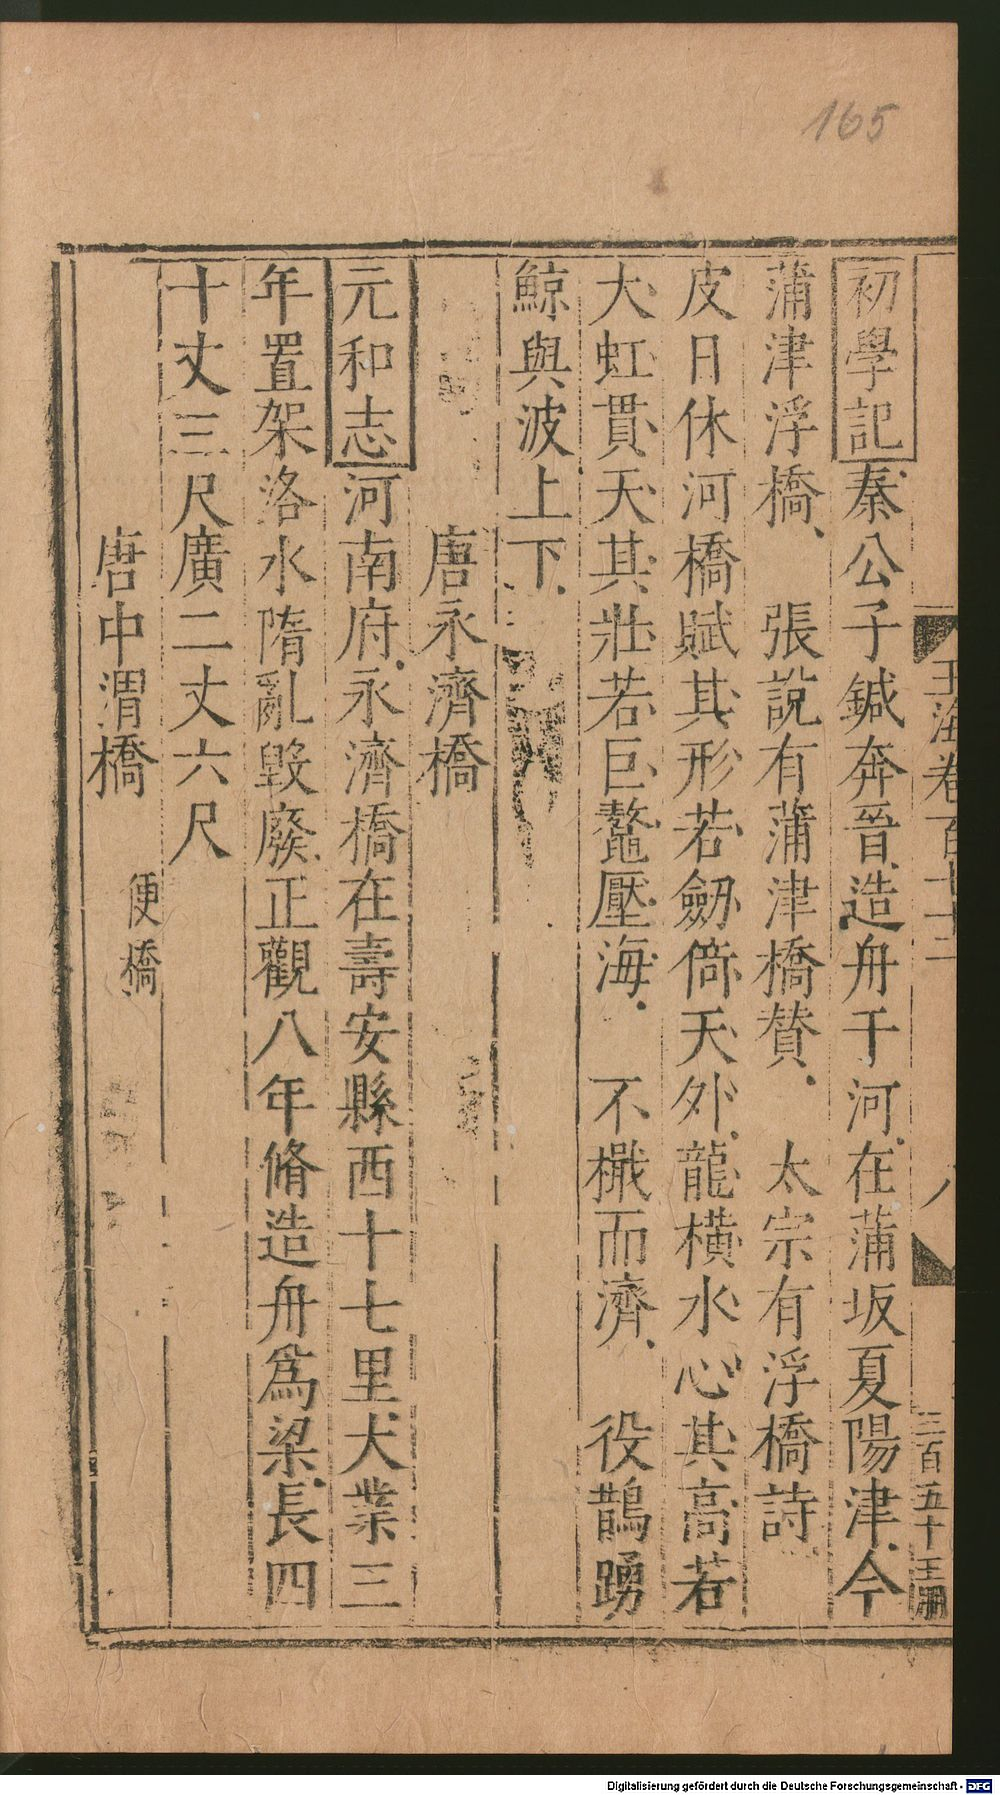 165
玉海卷一百七十二
八
三百五十
初學記秦公子鍼奔晉造舟于河在蒲坂夏陽津今
蒲津浮橋　張說有蒲津橋賛　太宗有浮橋詩
皮日休河橋賦其形若劒倚天外龍橫水心其高若
大虹貫天其壯若巨鼇壓海　不檝而濟　役鵲踴
鯨與波上下
唐永濟橋
元和志河南府永濟橋在壽安縣西十七里大業三
年置架洛水隋亂毀廢正觀八年脩造舟爲梁長四
十丈三尺廣二丈六尺
唐中渭橋　便橋
Digitalisierung gefördert durch die Deutsche Forschungsgemeinschaft - DFG